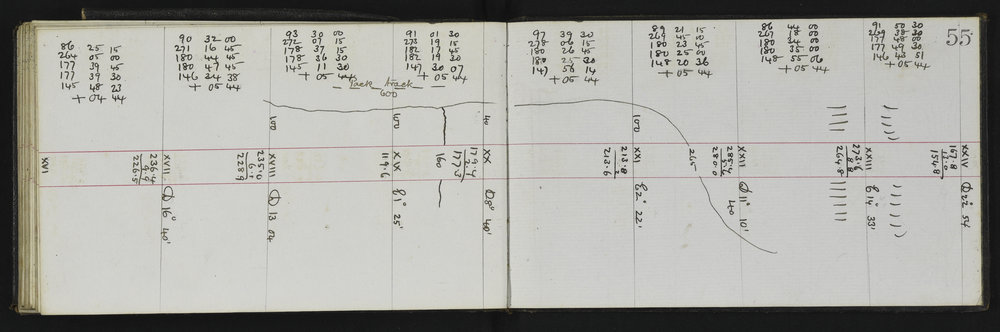 55
86 25 15
264 05 00
177 39 45
177 39 30
145 48 23
+ 04 44
90 32 00
271 16 45
180 44 45
180 47 45
146 34 38
+ 05 44
93 30 00
272 07 15
178 37 15
178 36 30
145 11 30
+ 05 44
91 01 30
273 19 15
182 17 45
182 19 30
147 30 07
+ 05 44
Pack track
600
97 39 30
278 06 15
180 26 45
180 25 30
147 50 14
+ 05 44
89 21 15
269 45 00
180 23 45
180 25 00
148 20 36
+ 05 44
86 44 00
267 18 00
180 34 00
180 35 00
148 55 06
+ 05 44
91 50 30
269 38 30
177 48 00
177 49 30
146 43 51
+ 05 44
XVI
236.4
9.9
226.5
XVII
D 16° 40'
100
235.0
6.1
228.9
XVIII
D 13 04
100
119.6
XIX
E 1° 25'
160
40
179.7
2.4
177.3
XX
D 8° 40'
100
213.8
.2
213.6
XXI
E 2° 22'
265
285.4
5.4
280.0
XXII
D 11° 10'
40
273.6
8.8
264.8
XXIII
E 14° 33'
167.8
13.0
154.8
XXIV
D 22° 54